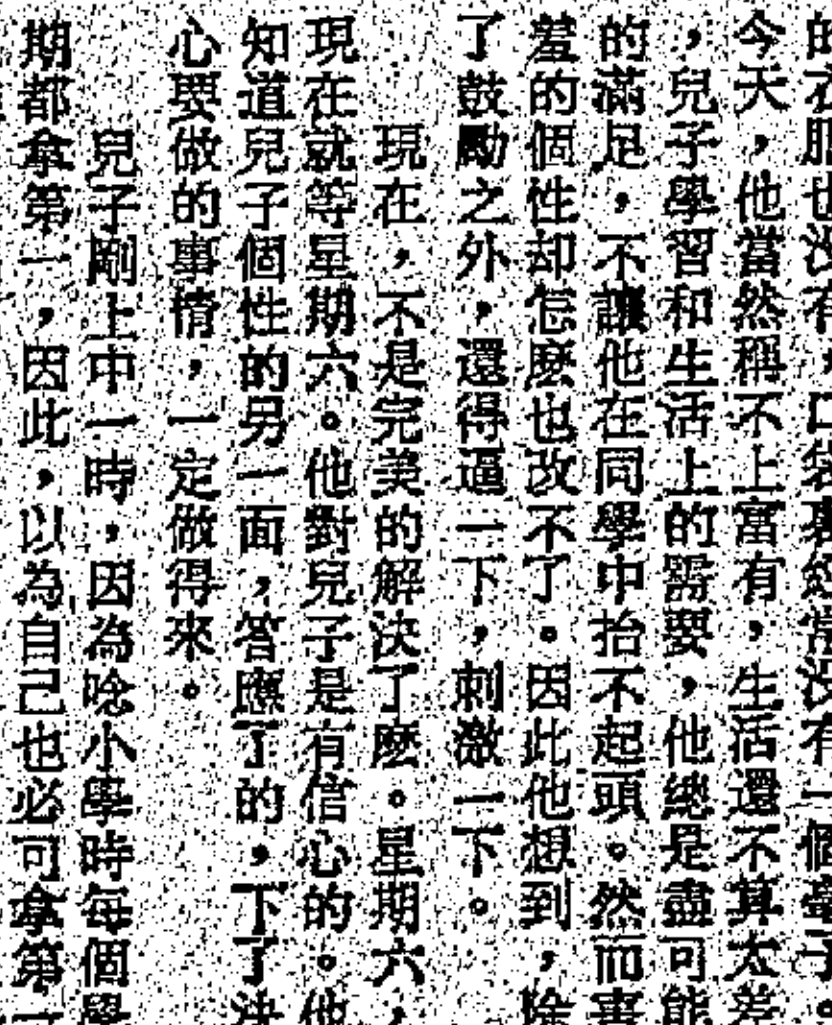 的衣服也沒有,口袋裏經常沒有一個毫子。
今天,他當然稱不上富有,生活還不算太差
,兒子學習和生活上的需要,他總是盡可能
的滿足,不讓他在同學中抬不起頭。然而害
羞的個性却怎麽也改不了。因此他想到,除
了鼓勵之外,還得逼一下,刺激一下。
現在,不是完美的解決了麽。星期六,
現在就等星期六。他對兒子是有信心的。他
知道兒子個性的另一面,答應了的,下了決
心要做的事情,一定做得來。
兒子剛上中一時,因為唸小學時每個學
期都拿第一,因此,以為自己也必可拿第一